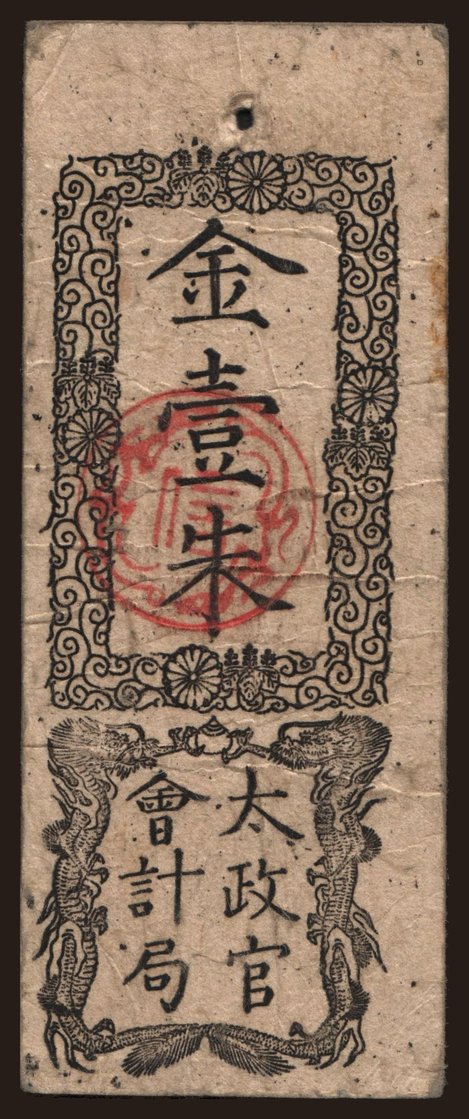 金壹朱
太政官
會計局